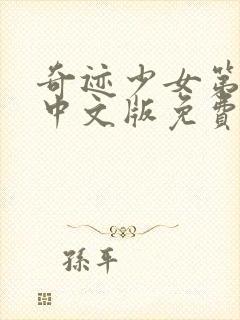 奇迹少女第
中文版免费
孫平